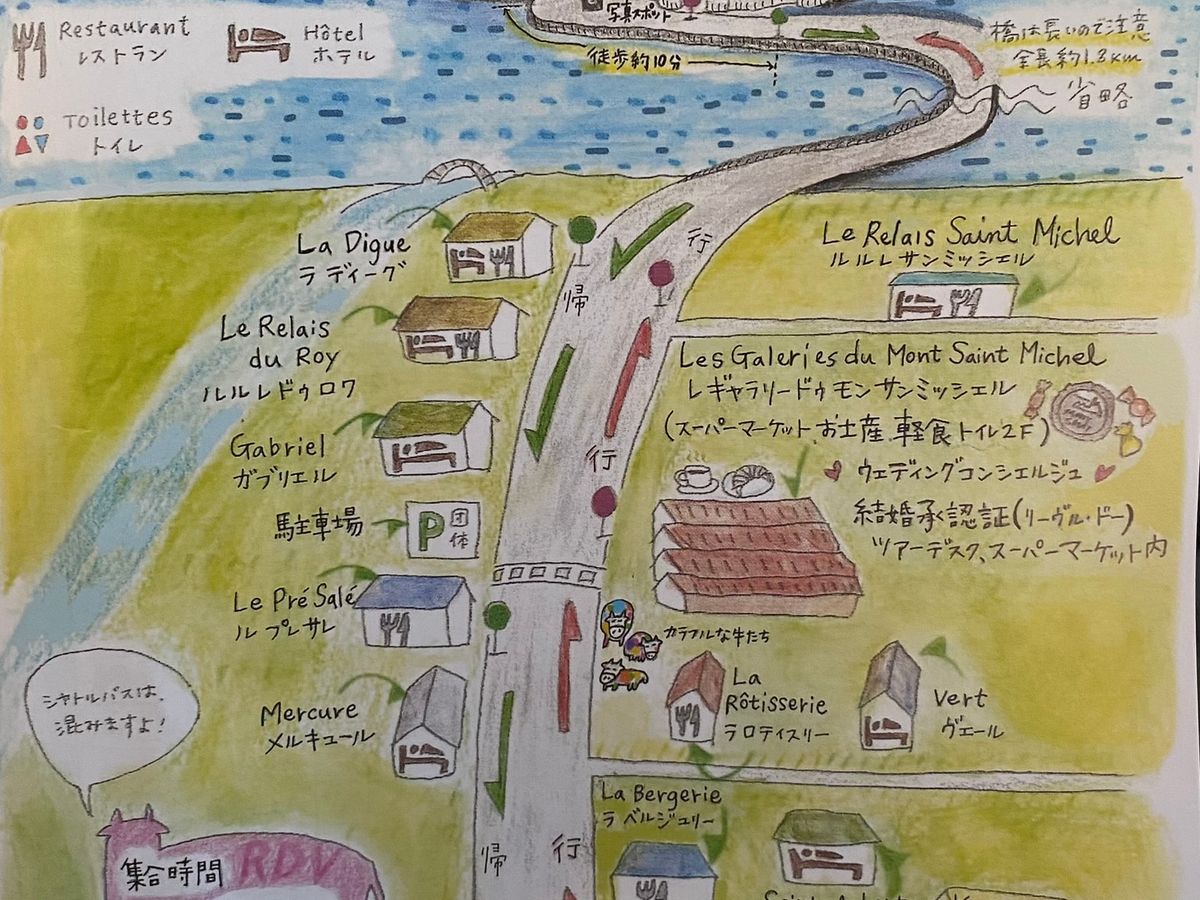 Restaurant
レストラン
Hôtel
ホテル
Toilettes
トイレ
写真スポット
徒歩約10分
橋は長いので注意
全長約1.3km
省略
La Digue
ラ ディーグ
Le Relais
du Roy
ルルレドゥロワ
Gabriel
ガブリエル
駐車場
P 団体
Le Pré Salé
ル プレサレ
Mercure
メルキュール
シャトルバスは、
混みますよ!
集合時間 RDV
帰
行
行
帰
行
Le Relais Saint Michel
ルルレサンミッシェル
Les Galeries du Mont Saint Michel
レギャラリードゥモンサンミッシェル
(スーパーマーケット、お土産、軽食トイレ2F)
ウェディングコンシェルジュ
結婚承認証(リーヴル・ドー)
ツアーデスク、スーパーマーケット内
カラフルな牛たち
La
Rôtisserie
ラロティスリー
Vert
ヴェール
La Bergerie
ラ ベルジュリー